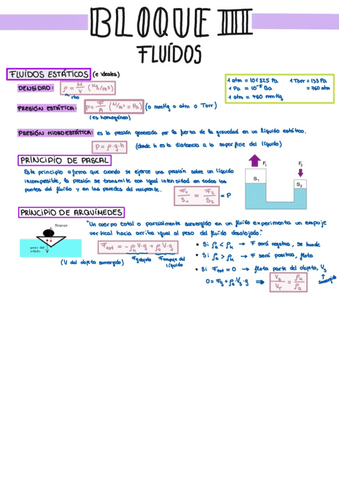 BLOQUE III
FLUÍDOS
FLUÍDOS ESTÁTICOS (e ideales)
DENSIDAD: ρ = M/V (kg/m³)
PRESIÓN ESTÁTICA: P = F/A (N/m² = Pa) (o mmHg o atm o Torr)
(es homogénea)
1 atm = 101325 Pa
1 atm = 760 mmHg
PRESIÓN HIDROESTÁTICA: es la presión generada por la fuerza de la gravedad en un líquido estático.
P = ρ·g·h (donde h es la distancia a la superficie del líquido)
PRINCIPIO DE PASCAL
Este principio afirma que cuando se ejerce una presión sobre un líquido
incompresible, la presión se transmite con igual intensidad en todos los
puntos del fluido y en las paredes del recipiente.
F₁/S₁ = F₂/S₂ = P
F₁
F₂
S₁
S₂
PRINCIPIO DE ARQUÍMEDES
"Un cuerpo total o parcialmente sumergido en un fluido experimenta un empuje
vertical hacia arriba igual al peso del fluido desalojado."
(V del objeto sumergido)
F será negativa, se hunde
F será positiva, flota
Si F tot = 0 → flota parte del objeto,